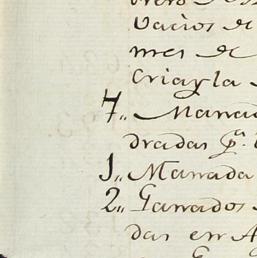 Vacios de
mes de
Criar la
4,, Manad
dradas p.ª
1,, Manada
2,, Ganados
das en A